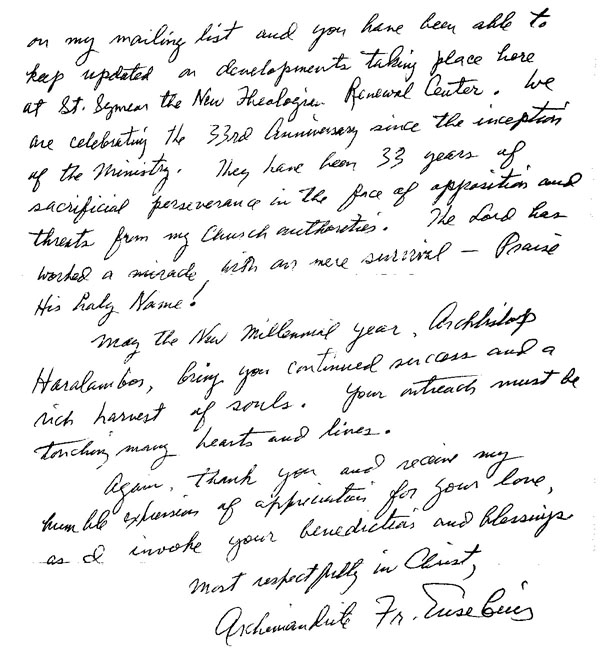 on my mailing list and you have been able to
keep updated on developments taking place here
at St. Symeon the New Theologian Renewal Center. We
are celebrating the 33rd Anniversary since the inception
of the Ministry. They have been 33 years of
sacrificial perseverance in the face of opposition and
threats from my Church authorities. The Lord has
worked a miracle with our mere survival — Praise
His holy Name!
May the New Millennial year, Archbishop
Haralambos, bring you continued success and a
rich harvest of souls. Your outreach must be
touching many hearts and lives.
Again, thank you and receive my
humble expression of appreciation for your love,
as I invoke your benediction and blessings
most respectfully in Christ,
Archimandrite Fr. Eusebius